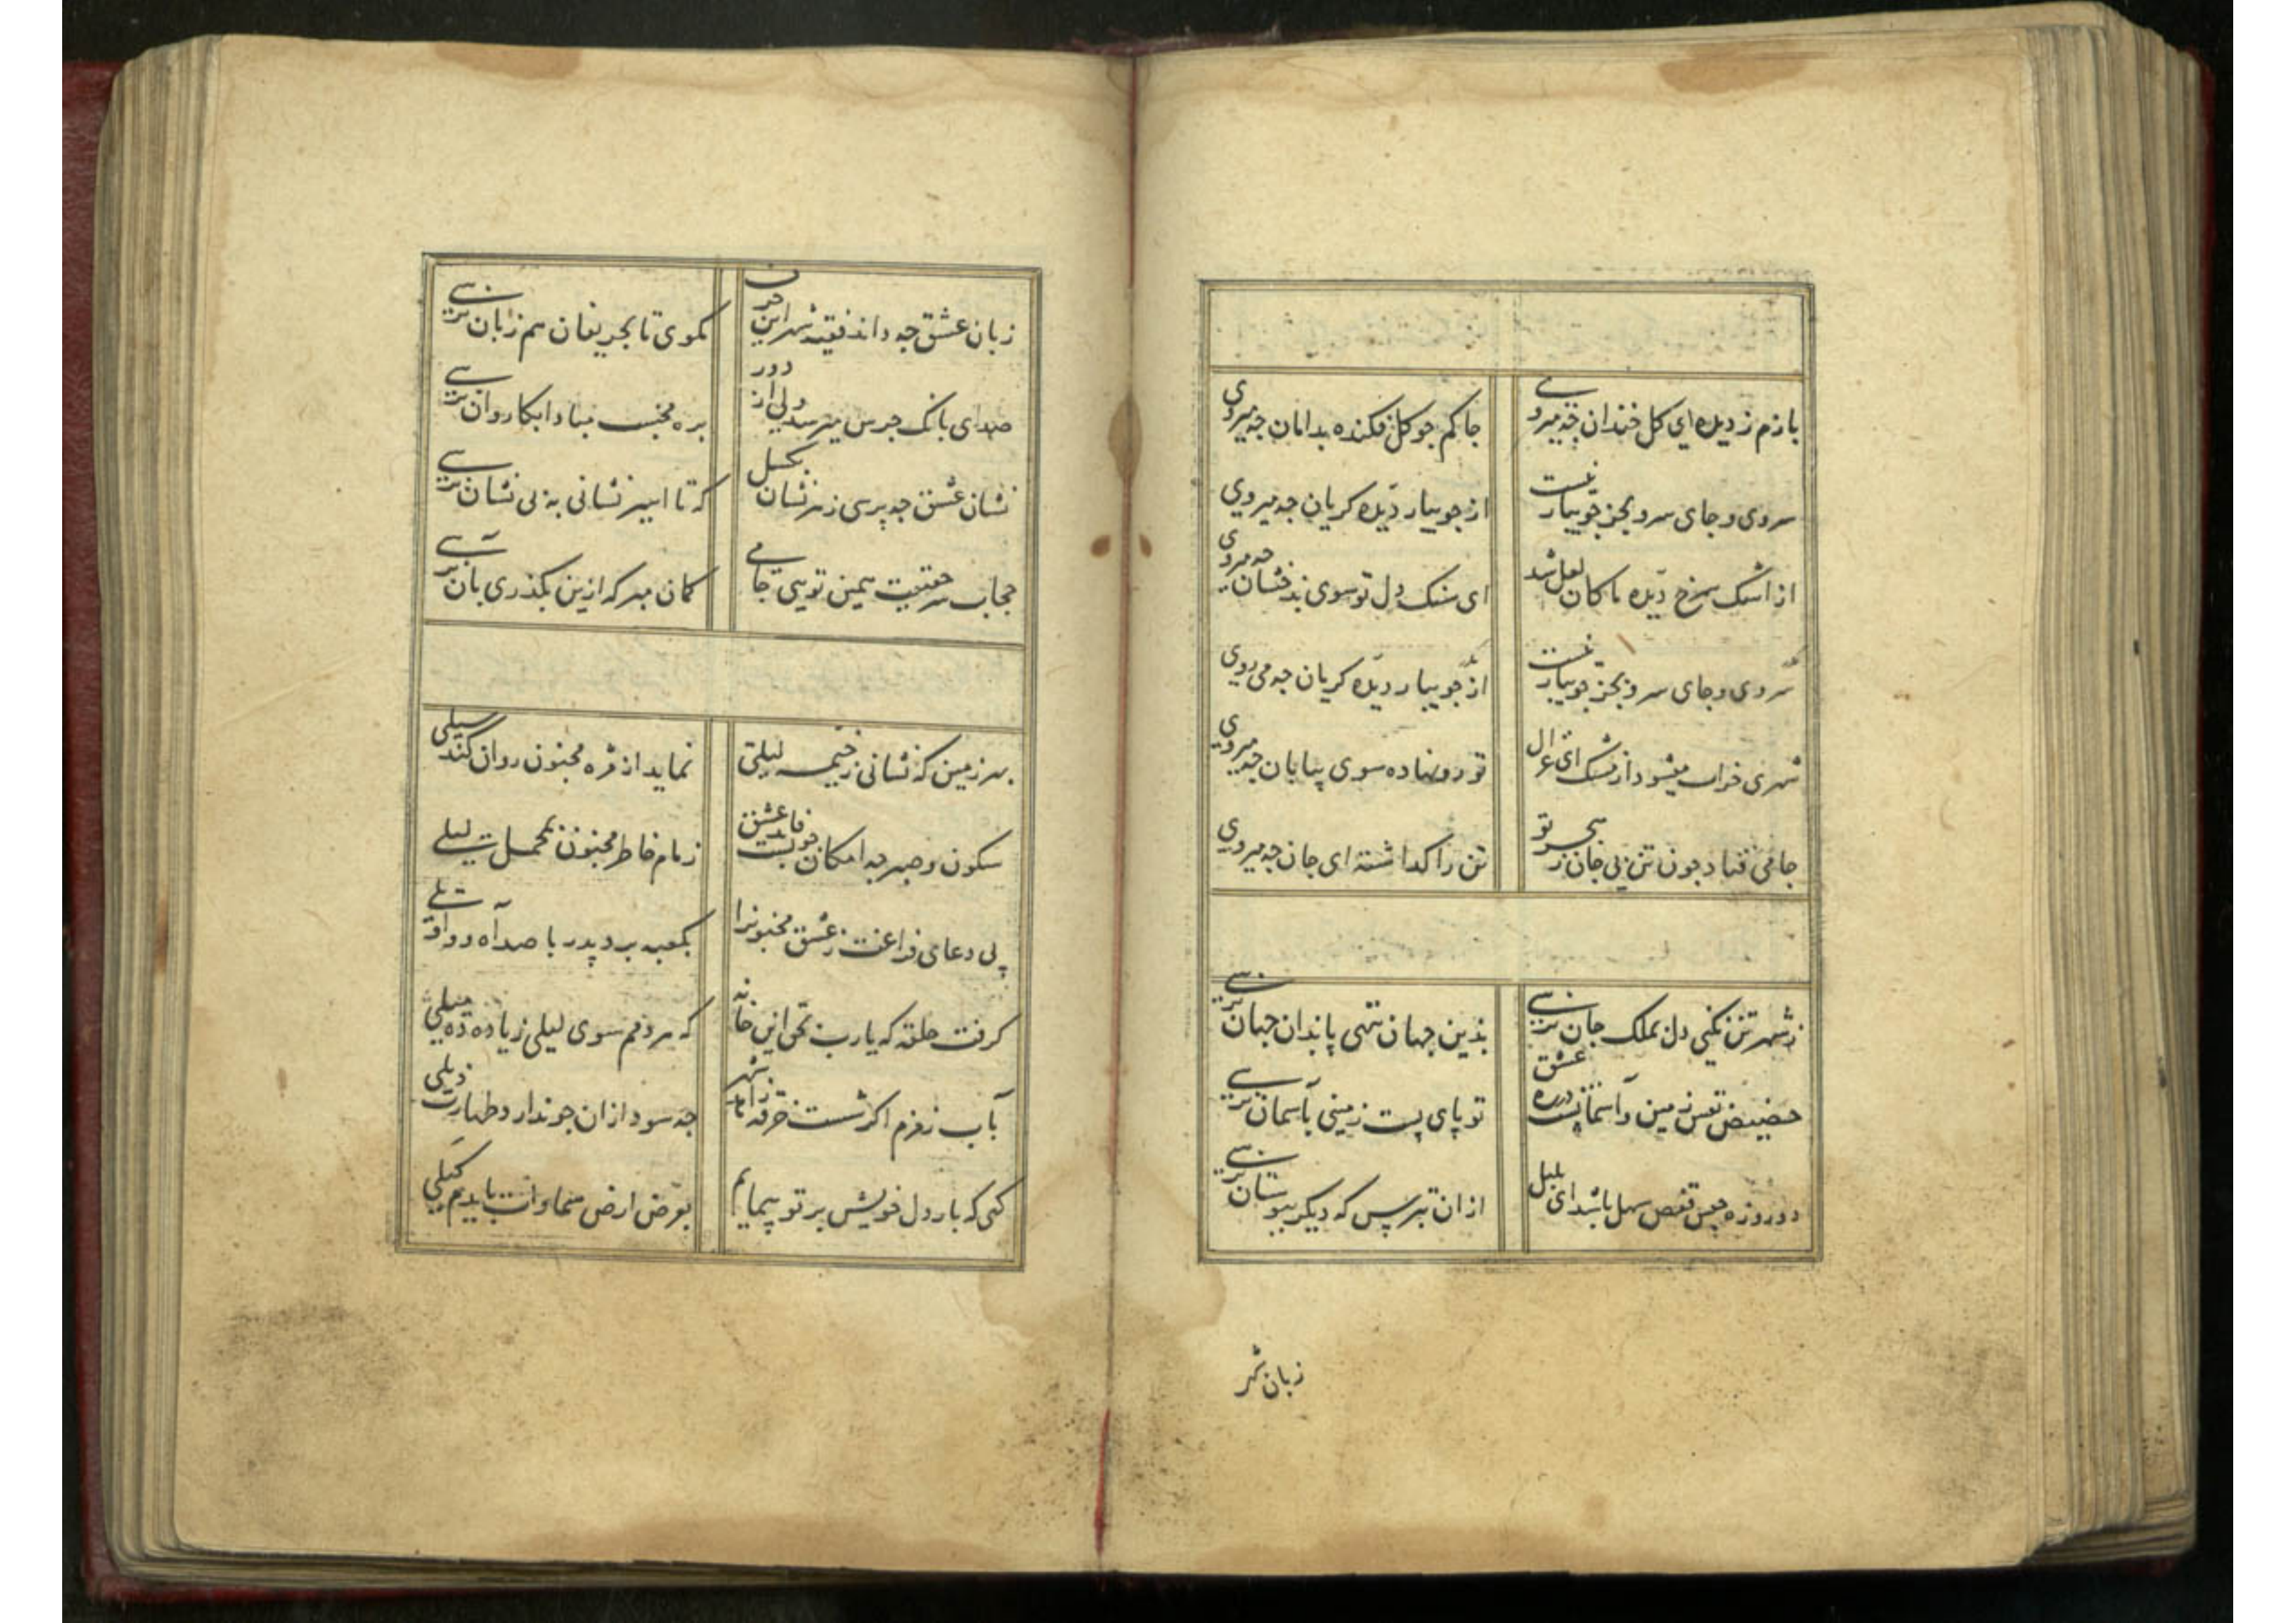 بازم ز دیده ای کل خندان جه میروی جاکم جو کل فکنده بدامان جه میروی
سروی و جای سرو بجز جویبار نیست از جویبار دیده کریان جه میروی
از اشک سرخ دیده ما کان لعل شد ای سنک دل تو سوی بدخشان جه میروی
سروی و جای سرو بجز جویبار نیست از جویبار دیده کریان جه می روی
شهری خراب میشود از مشک ای غزال تو رو نهاده سوی بیابان جه میروی
جامی فتاد جون تن بی جان ز هجر تو تن را کذاشته ای جان جه میروی
ز شهر تن نکنی دل بملک جان نرسی بدین جهان ننهی پا بدان جهان نرسی
حضیض نفس زمین و آسمانست دره عشق تو پای پست زمینی بآسمان نرسی
دو روزه حبس قفص سهل باشد ای بلبل ازان بترس که دیکر ببوستان نرسی
زبان شهر
زبان عشق جه داند فقیه شهر این حرف مکوی تا بحریفان هم زبان نرسی
صدای بانک جرس میرسد ولی از دور بره مخسب مبادا بکاروان نرسی
نشان عشق جه پرسی ز هر نشان بکسل که تا اسیر نشانی به بی نشان نرسی
حجاب سر حقیقت همین تویی جامی کمان مبر که ازین بکذری بان نرسی
بهر زمین که نشانی ز خیمه لیلی نماید از مژه مجنون روان کند سیلی
سکون و صبر جه امکان زمام خاطر مجنون بمحمل لیلی
پی دعای فراغت ز عشق مجنونرا بکعبه برد پدر با صد آه و واویلی
کرفت حلقه که یارب بحق این خانه که هر دمم سوی لیلی زیاده ده میلی
بآب زمزم اکر شست خرقه زاهد شهر جه سود ازان جو ندارد طهارت ذیلی
کهی که بار دل خویش بر تو پیمایم بعرض ارض سماوات بایدم کیلی